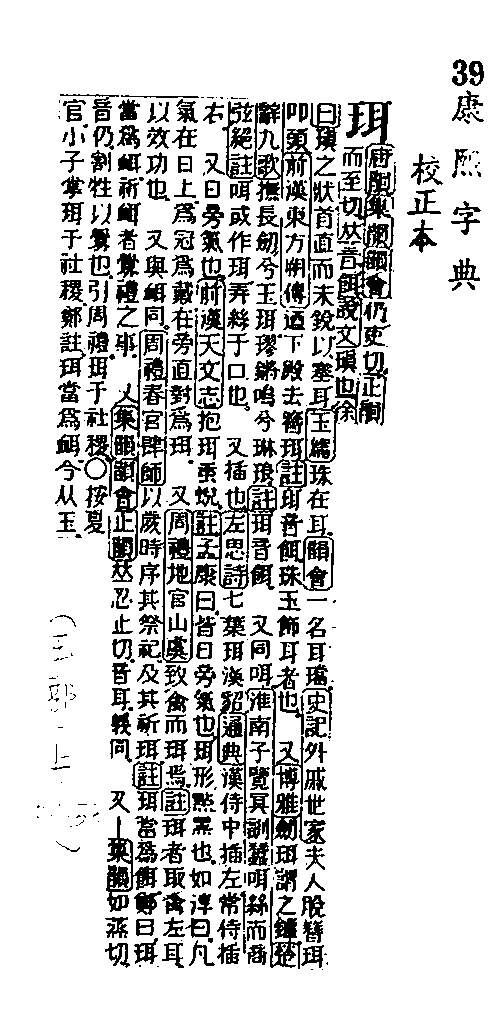 39
康熙字典
校正本
珥
唐韻集韻韻會仍吏切正韻
而至切𠀤音餌說文瑱也徐
曰瑱之狀首直而末銳以塞耳玉篇珠在耳韻會一名耳璫史記外戚世家夫人脫簪珥
叩頭前漢東方朔傳迺下殿去簪珥註珥音餌珠玉飾耳者也 又博雅劒珥謂之鐔楚
辭九歌撫長劒兮玉珥璆鏘鳴兮琳琅註珥音餌 又同咡淮南子覽冥訓蠶咡絲而商
弦絕註咡或作珥弄絲于口也 又插也左思詩七葉珥漢貂通典漢侍中插左常侍插
右 又日旁氣也前漢天文志抱珥虹蜺註孟康曰皆日旁氣也珥形點黑也如淳曰凡
氣在日上爲冠爲戴在旁直對爲珥 又周禮地官山虞致禽而珥焉註珥者取禽左耳
以效功也 又與衈同周禮春官肆師以歲時序其祭祀及其祈珥註珥當爲餌鄭曰珥
當爲衈祈衈者釁禮之事 又集韻韻會正韻𠀤忍止切音耳義同 又集韻如蒸切
音仍割牲以釁也引周禮珥于社稷○按夏
官小子掌珥于社稷鄭註珥當爲衈今从玉